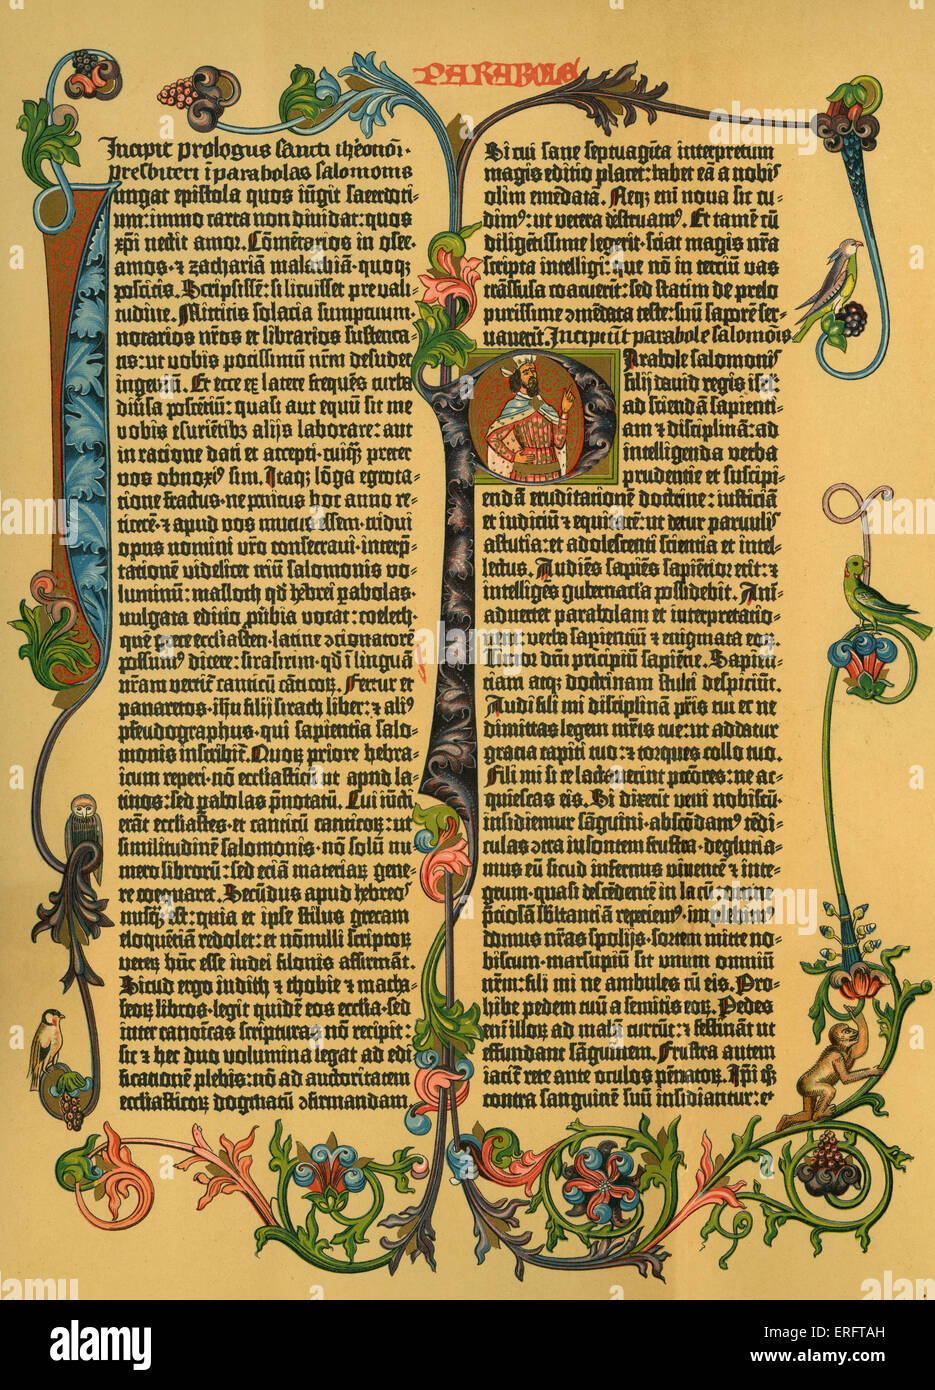 PARABOLE
Incipit prologus sancti iheronimi
presbiteri i parabolas salomonis
Iungat epistola quos iūgit sacerdoti-
um: immo carta non dividat: quos
xp̄i nectit amor. Cōmētarios in osee,
amos, ⁊ zachariā malachiā, quoq;
poscitis. Scripsissē: si licuisset pre vali-
tudine. Mittitis solacia sumptuum,
notarios nr̄os et librarios sustenta-
tis: ut vobis potissimū nr̄m desudet
ingeniū. Et ecce ex latere frequēs turba
diūsa poscētiū: quasi aut equū sit me
vobis esuriētib⁊ alijs laborare: aut
in ratione dati et accepti, cuiq̄; preter
vos obnoxi⁹ sim. Itaq; lōga egrotа-
tione fractus, ne penitus hoc anno re-
ticerē, ⁊ apud vos mutus essem, tridui
opus nomini vr̄o consecravi, interp̄-
tationē videlicet triū salomonis vo-
luminū: masloth qd̄ hebrei pabolas,
vulgata editio ꝓūbia vocat: coeleth,
quē grece ecclīasten, latine ↄcionatorē
possum⁹ dicere: sirasirim, qd̄ ī linguā
nr̄am vertit̄ canticū cāticoꝝ. Fertur et
panaretos, ihū filij sirach liber: ⁊ ali⁹
pseudographus, qui sapientia salo-
monis inscribit̄. Quoꝝ priorē hebra-
icum reperi, nō ecclīasticū ut apud la-
tinos: sed pabolas p̄notatū. Cui iūcti
erāt ecclīastes, et canticū canticoꝝ: ut
similitudinē salomonis, nō solū nu-
mero librorū: sed eciā materiaꝝ gene-
re coequaret. Secūdus apud hebreos
nusq̄; est: quia et ipse stilus grecam
eloquētiā redolet: et nōnulli scriptoꝝ
vetēꝝ hūc esse iudei filonis affirmāt.
Sicud ergo iudith ⁊ thobie ⁊ macha-
beoꝝ libros, legit quidē eos ecclīa, sed
inter canoīcas scripturas nō recipit:
sic ⁊ hec duo volumina legat ad edi-
ficationē plebis: nō ad auctoritatem
ecclīasticoꝝ dogmatū ↄfirmandam.
Si cui sane septuagīta interpretum
magis editio placet: habet eā a nobis
olim emēdatā. Neq; enī nova sic cu-
dim⁹: ut vetera destruam⁹. Et tamē cū
diligētissime legerit, sciat magis nr̄a
scripta intelligi: que nō in terciū vas
trāsfusa coacuerīt: sed statim de prelo
purissime ↄmēdata teste: suū saporē ser-
vaverīt. Incipiūt parabole salomōis
Parabole salomonis
filij david regis isrl̄:
ad sciendā sapienti-
am ⁊ disciplinā: ad
intelligenda verba
prudentie et suscipi-
endā eruditationē doctrine: iusticiā
et iudiciū ⁊ equitatē: ut detur parvulis
astutia: et adolescenti scientia et intel-
lectus. Audiēs sapiēs sapiētior erit: ⁊
intelligēs gubernacl̄a possidebit. Ani-
advertet parabolam et interpretatio-
nem: verba sapientiū ⁊ enigmata eoꝝ.
Timor dn̄i pricipiū sapiētie. Sapien-
tiam atq; doctrinam stulti despiciūt.
Audi fili mi disciplinā pr̄is tui et ne
dimittas legem mr̄is tue: ut addatur
gracia capiti tuo: ⁊ torques collo tuo.
Fili mi si te lactaverint pctōres: ne ac-
quiescas eis. Si dixerīt veni nobiscū,
insidiemur sāguini, abscōdam⁹ tēdi-
culas ↄtra insontem frustra, deglutia-
mus eū sicud infernus viventē ⁊ inte-
grum, quasi descēdentē in lacū: omne
p̄ciosā sb̄stantiā reperiem⁹, implebim⁹
domus nr̄as spolijs, sortem mitte no-
biscum, marsupiū sit unum omniū
nr̄m: fili mi ne ambules cū eis. Pro-
hibe pedem tuū a semitis eoꝝ. Pedes
enī illoꝝ ad malū currūt: ⁊ festināt ut
effundant sāguinem. Frustra autem
iacit̄ rete ante oculos pēnatoꝝ. Ip̄i q̄;
contra sanguinē suū insidiantur: et
alamy
Image ID: ERFTAH
www.alamy.com